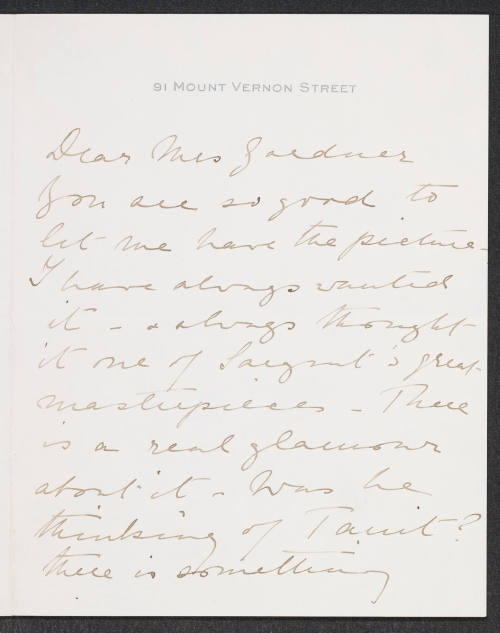 91 MOUNT VERNON STREET
Dear Mrs Gardner
You are so good to
let me have the picture -
I have always wanted
it - & always thought
it one of Sargent's great
masterpieces - There
is a real glamour
about it - Was he
thinking of Tanit?
there is something